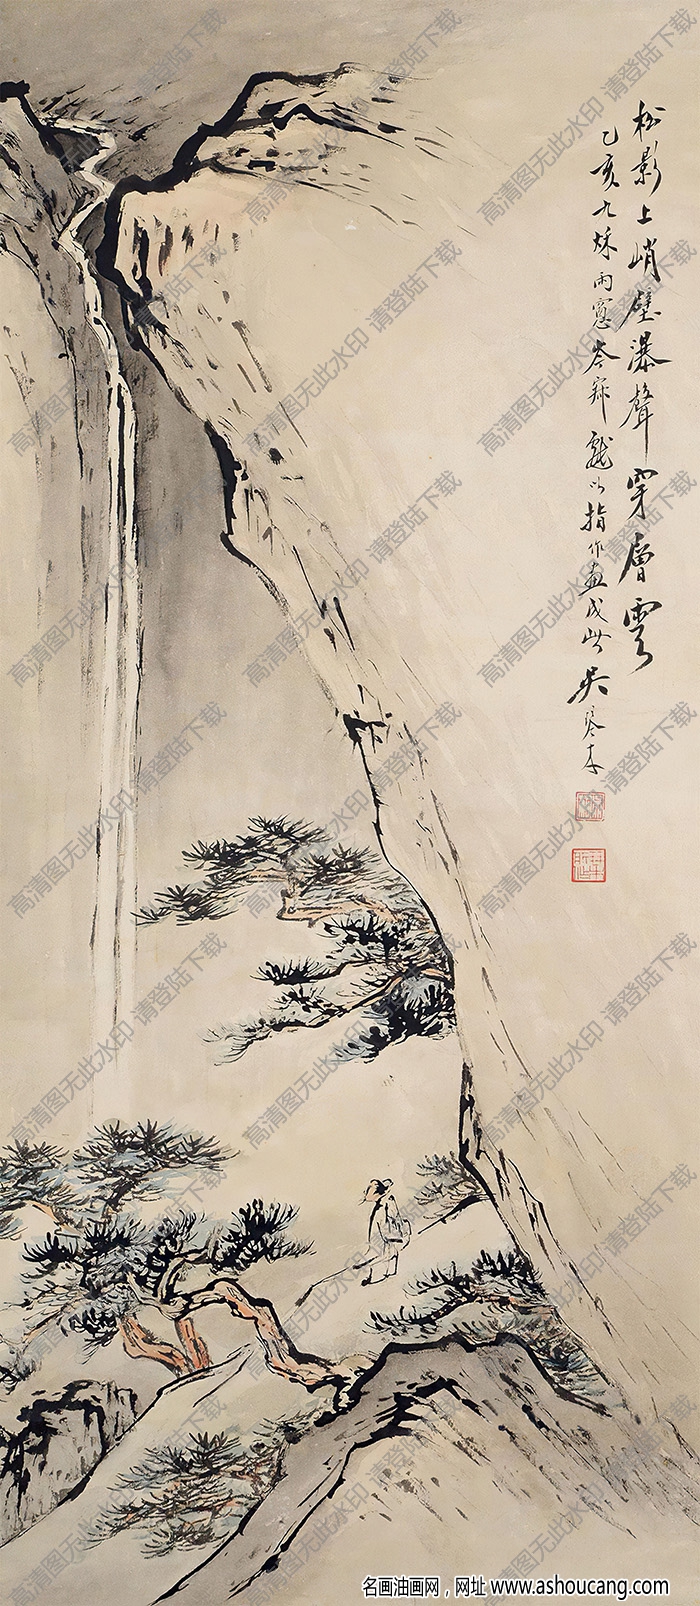 松影上峭壁瀑聲穿層雲
乙亥九秌雨窓岑寂戲以指作畫成此 吳琴木
高清图无此水印 请登陆下载
名画油画网，网址 www.ashoucang.com